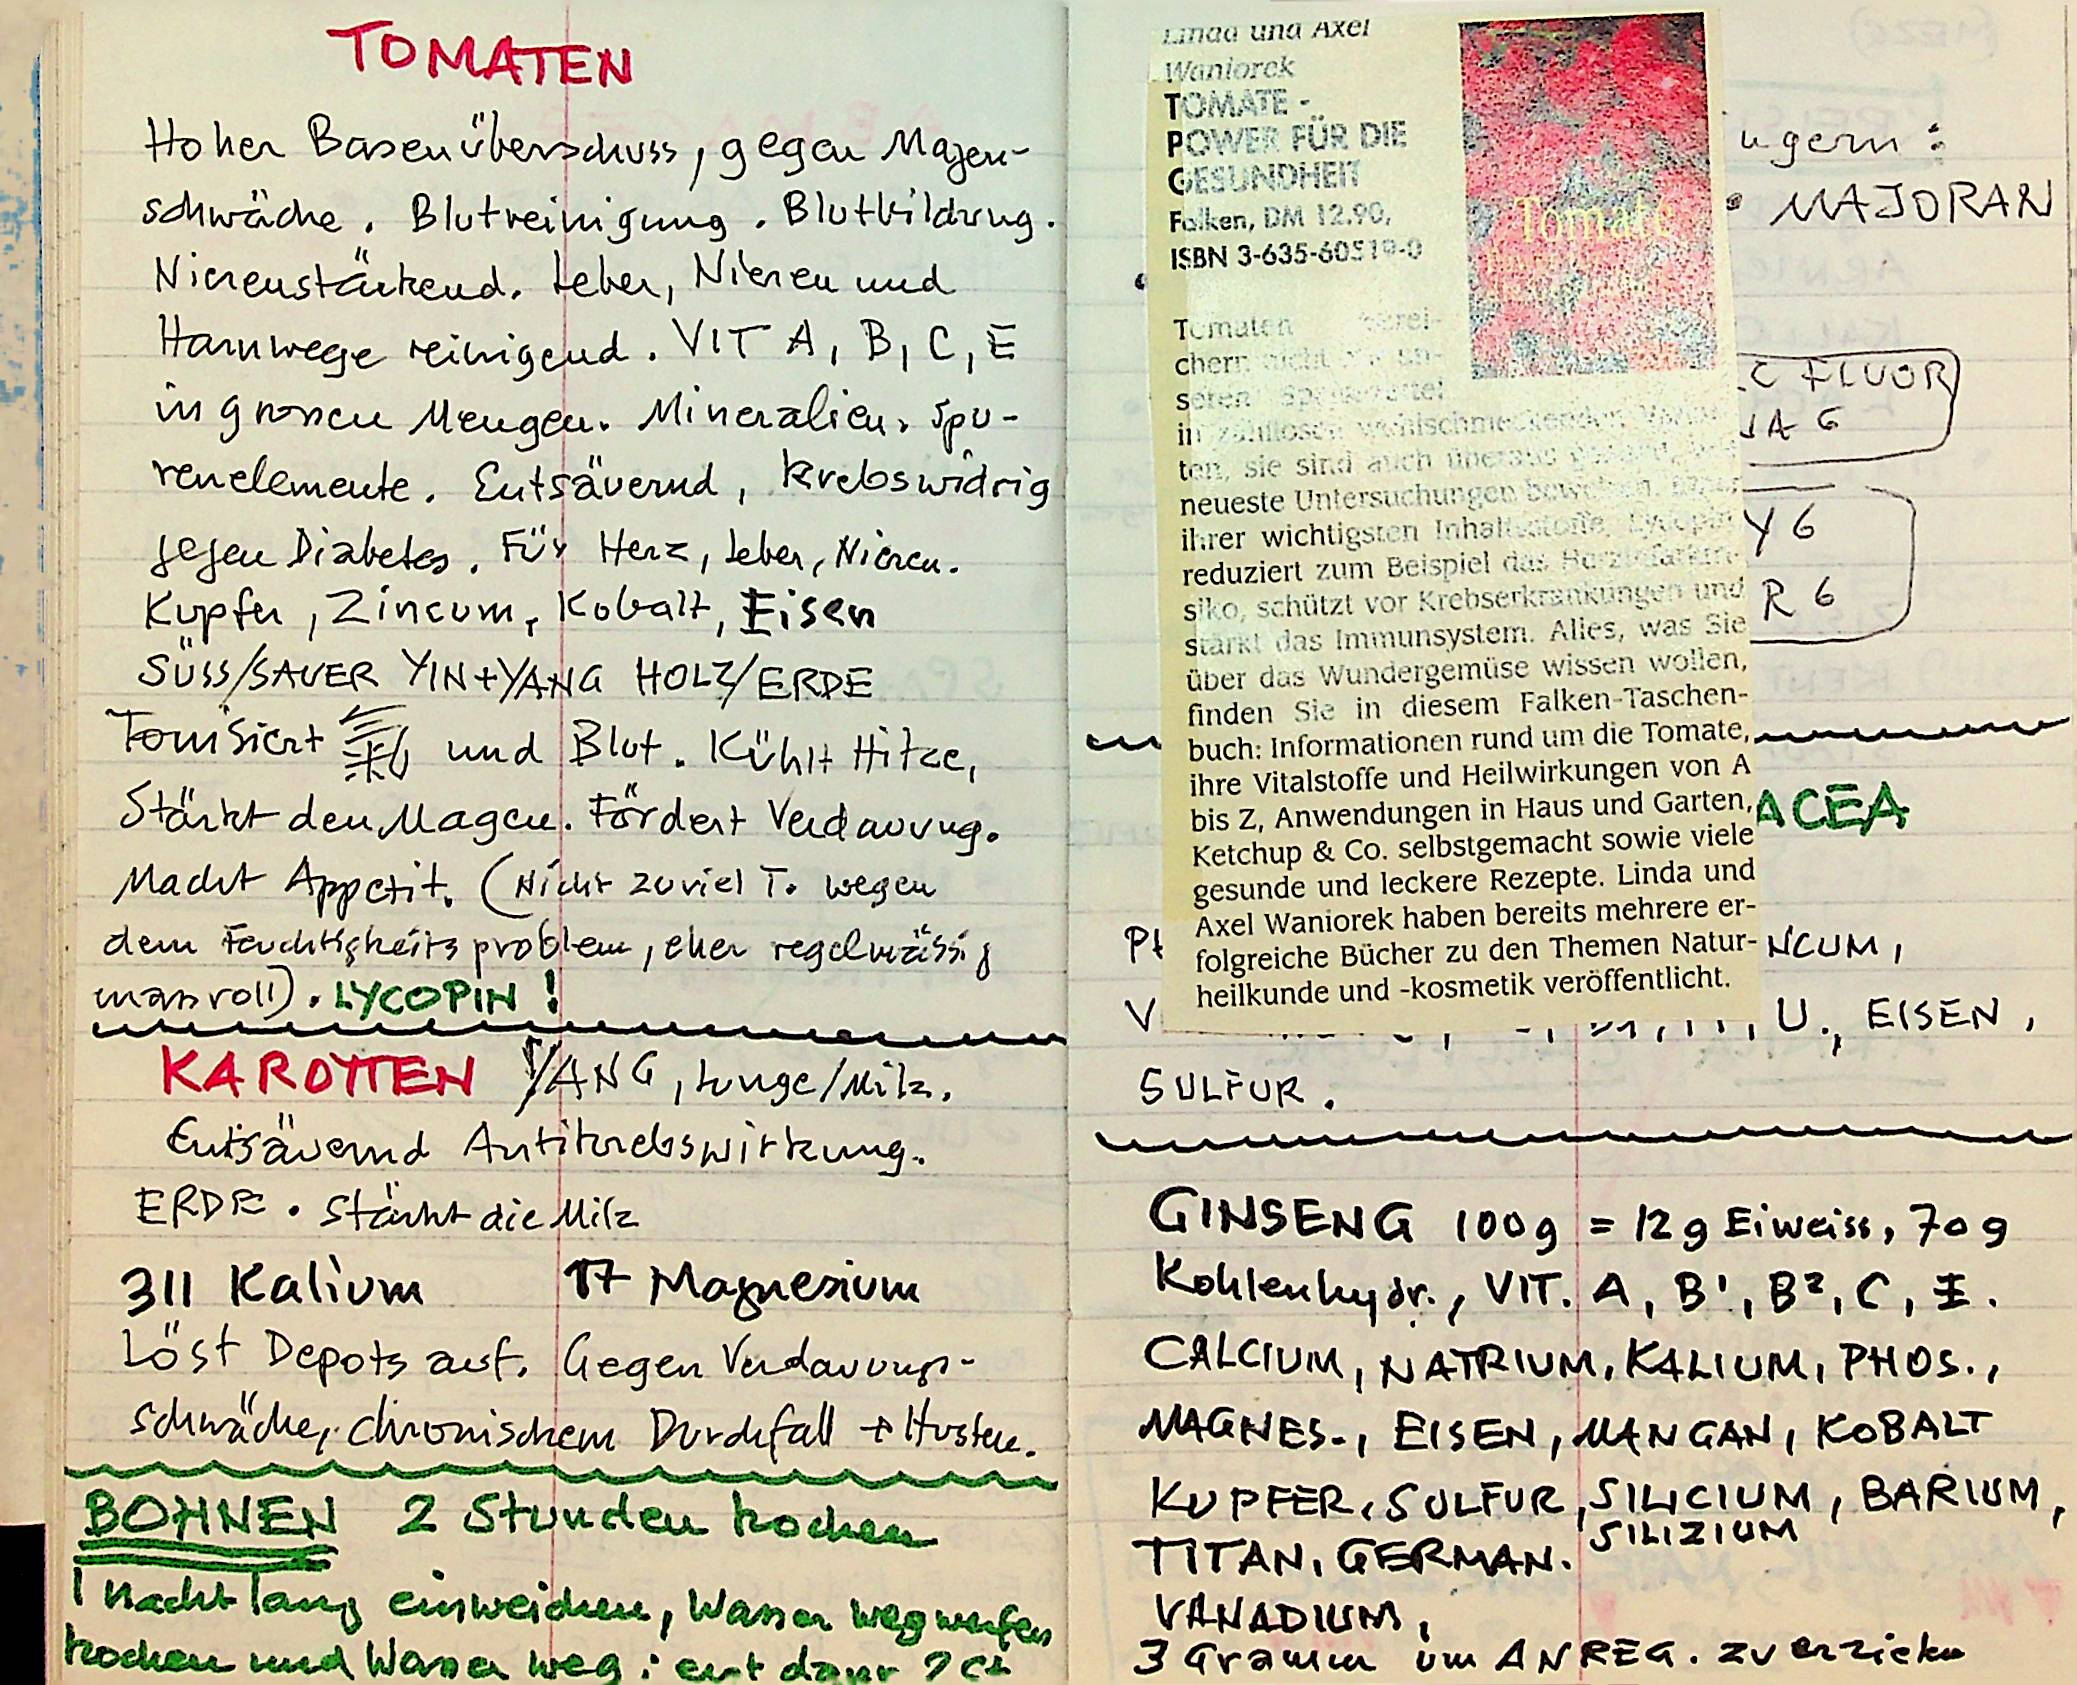 TOMATEN
Hoher Basenüberschuss, gegen Magen-
schwäche. Blutreinigung. Blutbildung.
Nierenstärkend. Leber, Nieren und
Harnwege reinigend. VIT A, B, C, E
in grossen Mengen. Mineralien. Spu-
renelemente. Entsäuernd, krebswidrig
gegen Diabetes. Für Herz, Leber, Nieren.
Kupfer, Zincum, Kobalt, Eisen
SÜSS/SAUER YIN+YANG HOLZ/ERDE
Tonisiert 氣 und Blut. Kühlt Hitze,
Stärkt den Magen. Fördert Verdauung.
Macht Appetit. (Nicht zuviel T. wegen
dem Feuchtigkeitsproblem, eher regelmässig
massvoll). LYCOPIN!
KAROTTEN YANG, Lunge/Milz.
Entsäuernd Antikrebswirkung.
ERDE. Stärkt die Milz
311 Kalium 17 Magnesium
Löst Depots auf. Gegen Verdauungs-
schwäche, chronischem Durchfall + Husten.
BOHNEN 2 Stunden kochen
1 Nacht lang einweichen, Wasser wegwerfen
kochen und Wasser weg: erst dann 2 St
Linda und Axel
Waniorek
TOMATE -
POWER FÜR DIE
GESUNDHEIT
Falken, DM 12.90,
ISBN 3-635-60519-0
Tomate
Tomaten berei-
chern nicht nur un-
seren Speisezettel
in zahllosen wohlschmeckenden Varian-
ten, sie sind auch überaus gesund, wie
neueste Untersuchungen beweisen. Einer
ihrer wichtigsten Inhaltsstoffe, Lycopin,
reduziert zum Beispiel das Herzinfarktri-
siko, schützt vor Krebserkrankungen und
stärkt das Immunsystem. Alles, was Sie
über das Wundergemüse wissen wollen,
finden Sie in diesem Falken-Taschen-
buch: Informationen rund um die Tomate,
ihre Vitalstoffe und Heilwirkungen von A
bis Z, Anwendungen in Haus und Garten,
Ketchup & Co. selbstgemacht sowie viele
gesunde und leckere Rezepte. Linda und
Axel Waniorek haben bereits mehrere er-
folgreiche Bücher zu den Themen Natur-
heilkunde und -kosmetik veröffentlicht.
ngern:
• MAJORAN
C FLUOR
NA 6
Y 6
R 6
ACEA
PH NCUM,
V U., EISEN,
SULFUR.
GINSENG 100g = 12g Eiweiss, 70g
Kohlenhydr., VIT. A, B1, B2, C, E.
CALCIUM, NATRIUM, KALIUM, PHOS.,
MAGNES., EISEN, MANGAN, KOBALT
KUPFER, SULFUR, SILICIUM, BARIUM,
SILIZIUM
TITAN, GERMAN.
VANADIUM,
3 Gramm um ANREG. zu erzielen